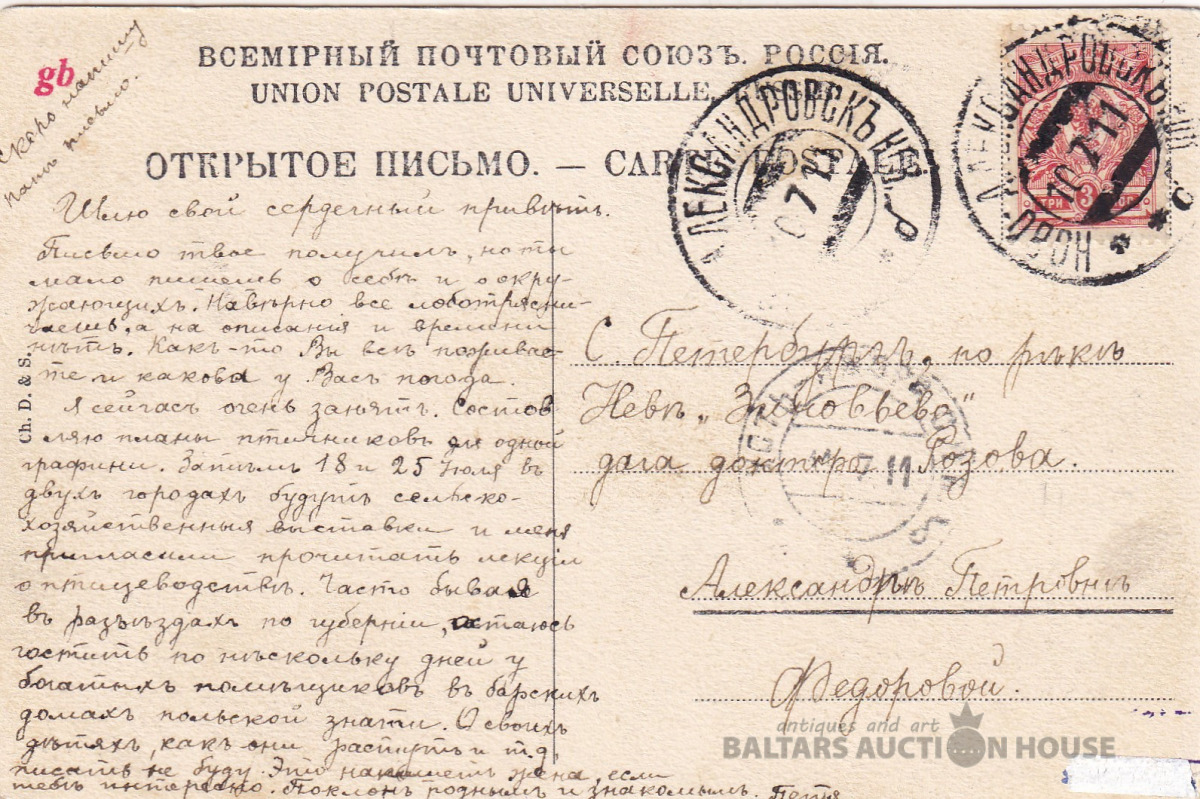 Скоро напишу
Вамъ письмо.
gb
ВСЕМІРНЫЙ ПОЧТОВЫЙ СОЮЗЪ. РОССІЯ.
UNION POSTALE UNIVERSELLE.
ОТКРЫТОЕ ПИСЬМО. — CARTE POSTALE
АЛЕКСАНДРОВСКЪ
7 11
АЛЕКСАНДРОВСКЪ
10 7 11
ТРИ 3 КОП.
Ch. D. & S.
Шлю свой сердечный привѣтъ.
Письмо твое получилъ, но ты
мало пишешь о себѣ и о окру-
жающихъ. Навѣрно все лоботрясни-
чаешь, а на описанія и времени
нѣтъ. Какъ-то Вы всѣ пожива-
ете и какова у Васъ погода.
Я сейчасъ очень занятъ. Состав-
ляю планы птичниковъ для одной
графини. Затѣмъ 18 и 25 Июля въ
двухъ городахъ будутъ сельско-
хозяйственныя выставки и меня
пригласили прочитать лекціи
о птицеводствѣ. Часто бывая
въ разъѣздахъ по губерніи, остаюсь
гостить по нѣскольку дней у
богатыхъ помѣщиковъ въ барскихъ
домахъ польской знати. О своихъ
дѣтяхъ, какъ они растутъ и т.д.
писать не буду. Это напишетъ жена, если
тебѣ интересно. Поклонъ роднымъ и знакомымъ. Петя
С. Петербургъ, по рѣкѣ
Невѣ „Зиновьева"
дача доктора Розова.
7 11
Александрѣ Петровнѣ
Федоровой.
antiques and art
BALTARS AUCTION HOUSE